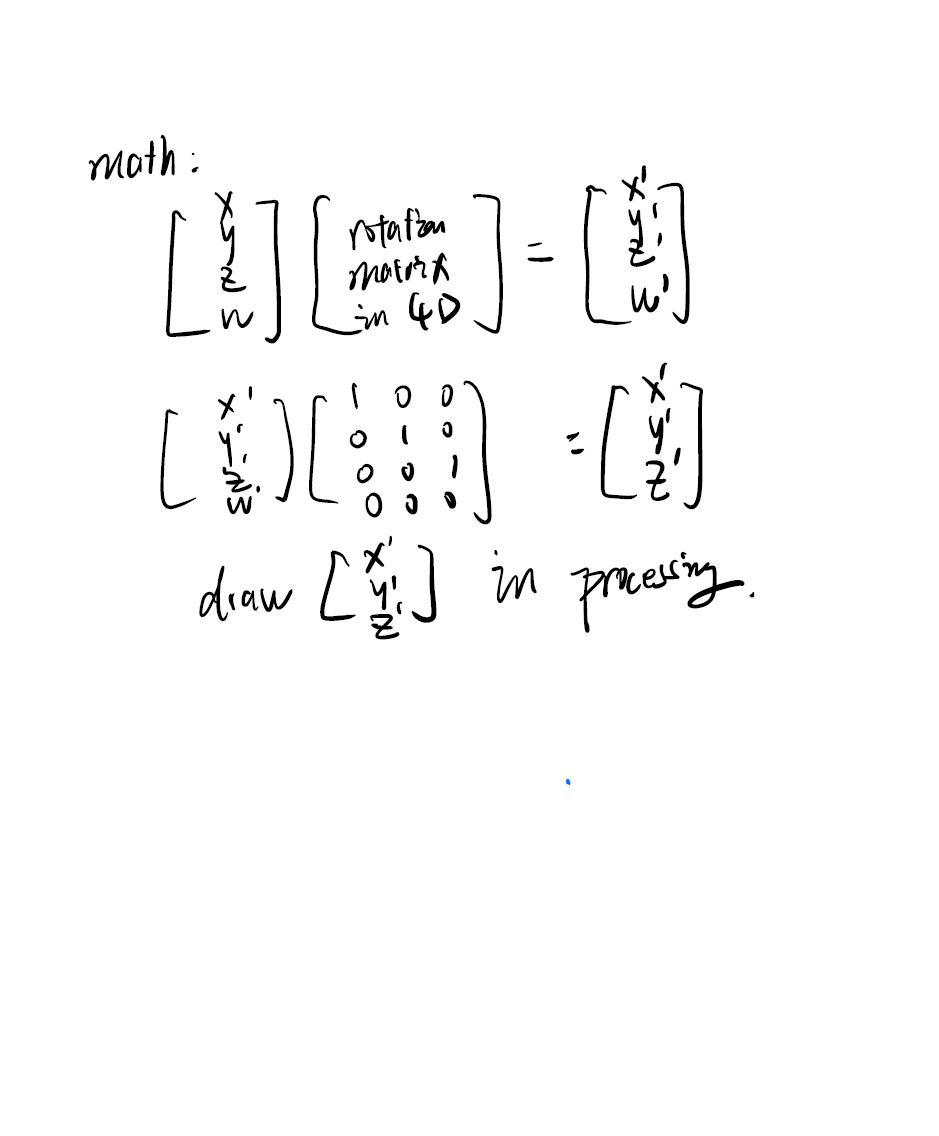 math:
[x y z w] [rotation matrix in 4D] = [x' y' z' w']
[x' y' z' w] [1 0 0
0 1 0
0 0 1
0 0 0] = [x' y' z']
draw [x' y' z'] in processing.